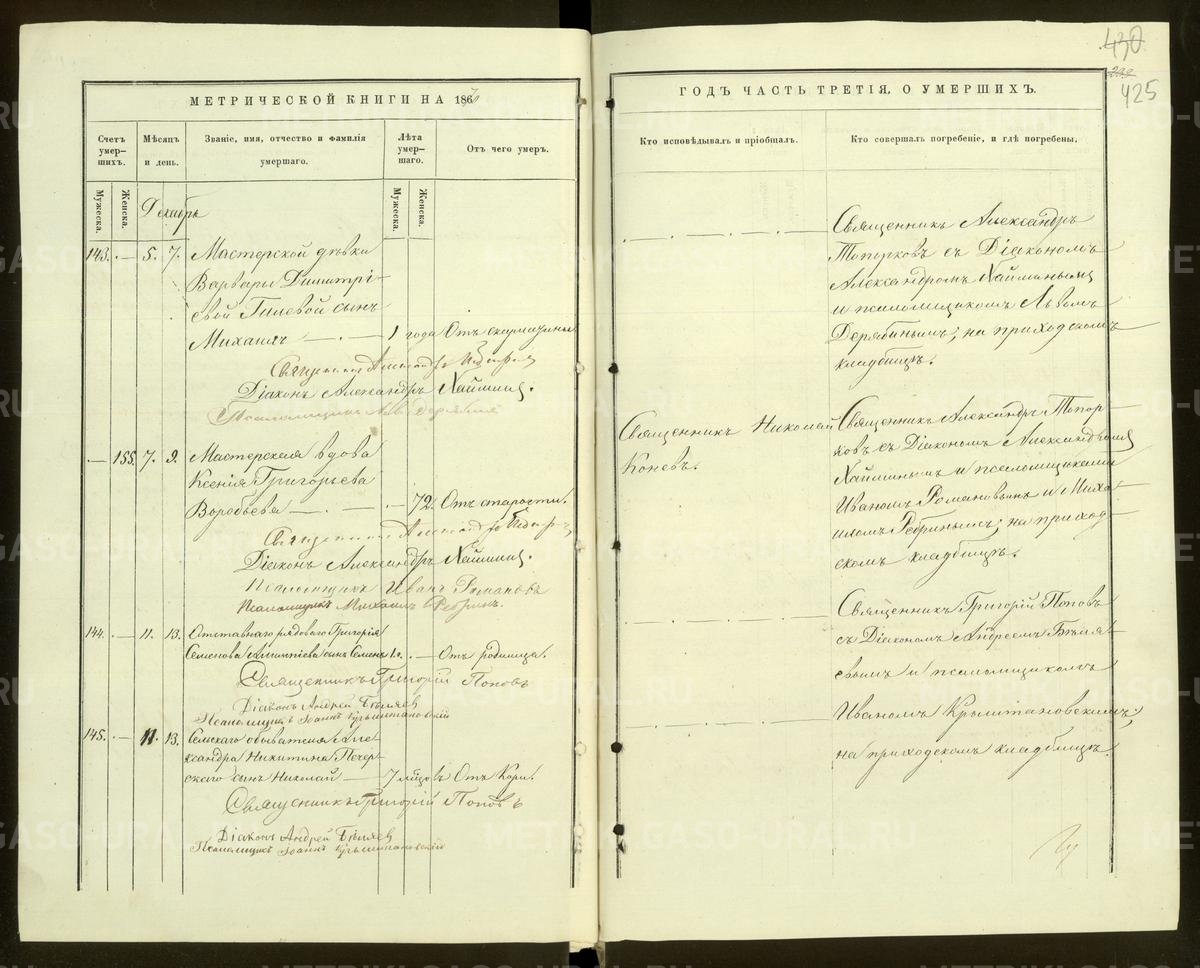 430
425
МЕТРИЧЕСКОЙ КНИГИ НА 186
Счетъ умер-шихъ.
Мѣсяцъ и день.
Званіе, имя, отчество и фамилія умершаго.
Лѣта умер-шаго.
Отъ чего умеръ.
Мужеска.
Женска.
Мужеска.
Женска.
Декабрь
143. — 5. 7. Мастерской дѣвки
Варвары Димитрі-
евой Гилевой сынъ
Михаилъ — 1 года Отъ скарлатины
Священникъ Александръ
Діаконъ Александръ Хайминъ.
Псаломщикъ Левъ Дерябинъ
— 155. 7. 9. Мастерская вдова
Ксенія Григорьева
Воробьева — 72. Отъ старости.
Священникъ Александръ
Діаконъ Александръ Хайминъ.
Псаломщикъ Иванъ Романовъ
Псаломщикъ Михаилъ Ребринъ.
144. — 11. 13. Отставнаго рядоваго Григорія
Семенова сынъ Семенъ 1 г. — Отъ родимца.
Священникъ Григорій Поповъ
Діаконъ Андрей Бѣляев
Псаломщикъ Іоаннъ
145. — 11. 13. Сельскаго обывателя Але-
ксандра Никитина Печер-
скаго сынъ Николай — 7 мѣсцовъ Отъ Кори.
Священникъ Григорій Поповъ
Діаконъ Андрей Бѣляев
Псаломщикъ Іоаннъ
ГОДЪ ЧАСТЬ ТРЕТІЯ, О УМЕРШИХЪ.
Кто исповѣдывалъ и пріобщалъ.
Кто совершалъ погребеніе, и гдѣ погребены.
Священникъ Александръ
Топорковъ съ Діакономъ
Александромъ Хайминымъ
и псаломщикомъ Львомъ
Дерябинымъ; на приходскомъ
кладбищѣ.
Священникъ Николай
Коневъ.
Священникъ Александръ Топор-
ковъ съ Діакономъ Александромъ
Хайминымъ и псаломщиками
Иваномъ Романовымъ и Миха-
иломъ Ребринымъ; на приход-
скомъ кладбищѣ.
Священникъ Григорій Поповъ
съ Діакономъ Андреемъ Бѣля-
евымъ и псаломщикомъ
Иваномъ Крыштановскимъ;
на приходскомъ кладбищѣ.
METRIKI.GASO-URAL.RU